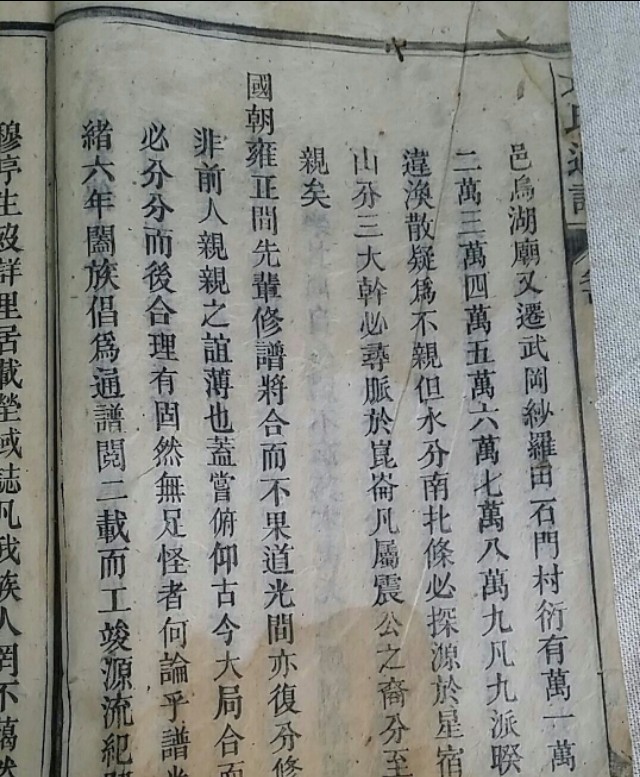 氏通譜
邑烏湖廟又遷武岡紗羅田石門村衍有萬一萬
二萬三萬四萬五萬六萬七萬八萬九凡九派睽
違渙散疑爲不親但水分南北條必探源於星宿
山分三大幹必尋脈於崑崙凡屬震公之裔分至
親矣
國朝雍正間先輩修譜將合而不果道光間亦復分修
非前人親親之誼薄也蓋嘗俯仰古今大局合而
必分分而後合理有固然無足怪者何論乎譜
緒六年闔族倡爲通譜閱二載而工竣源流紀
穆亭生歿詳里居載塋域誌凡我族人罔不藹然